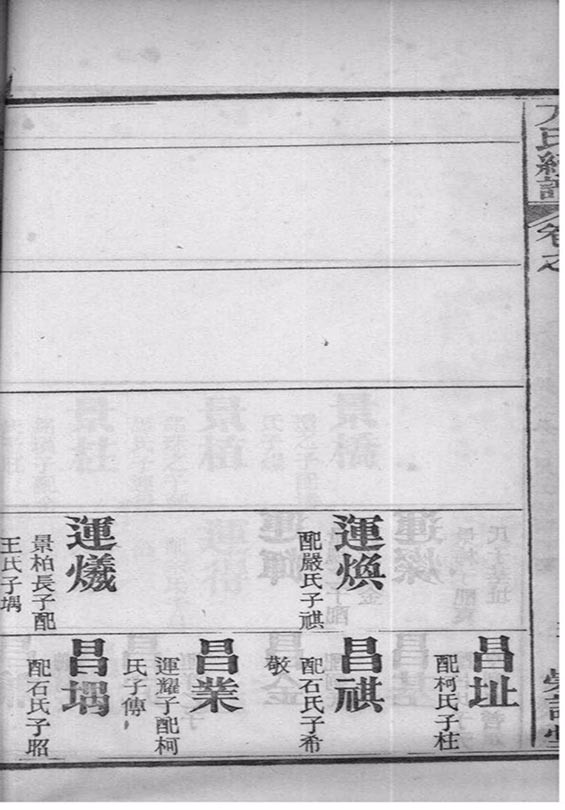 氏
卷之
運煥
配嚴氏子祺
運燨
景柏長子配
王氏子堣
昌址
配柯氏子柱
昌祺
配石氏子希
敬
昌業
運耀子配柯
氏子傳
昌堣
配石氏子昭